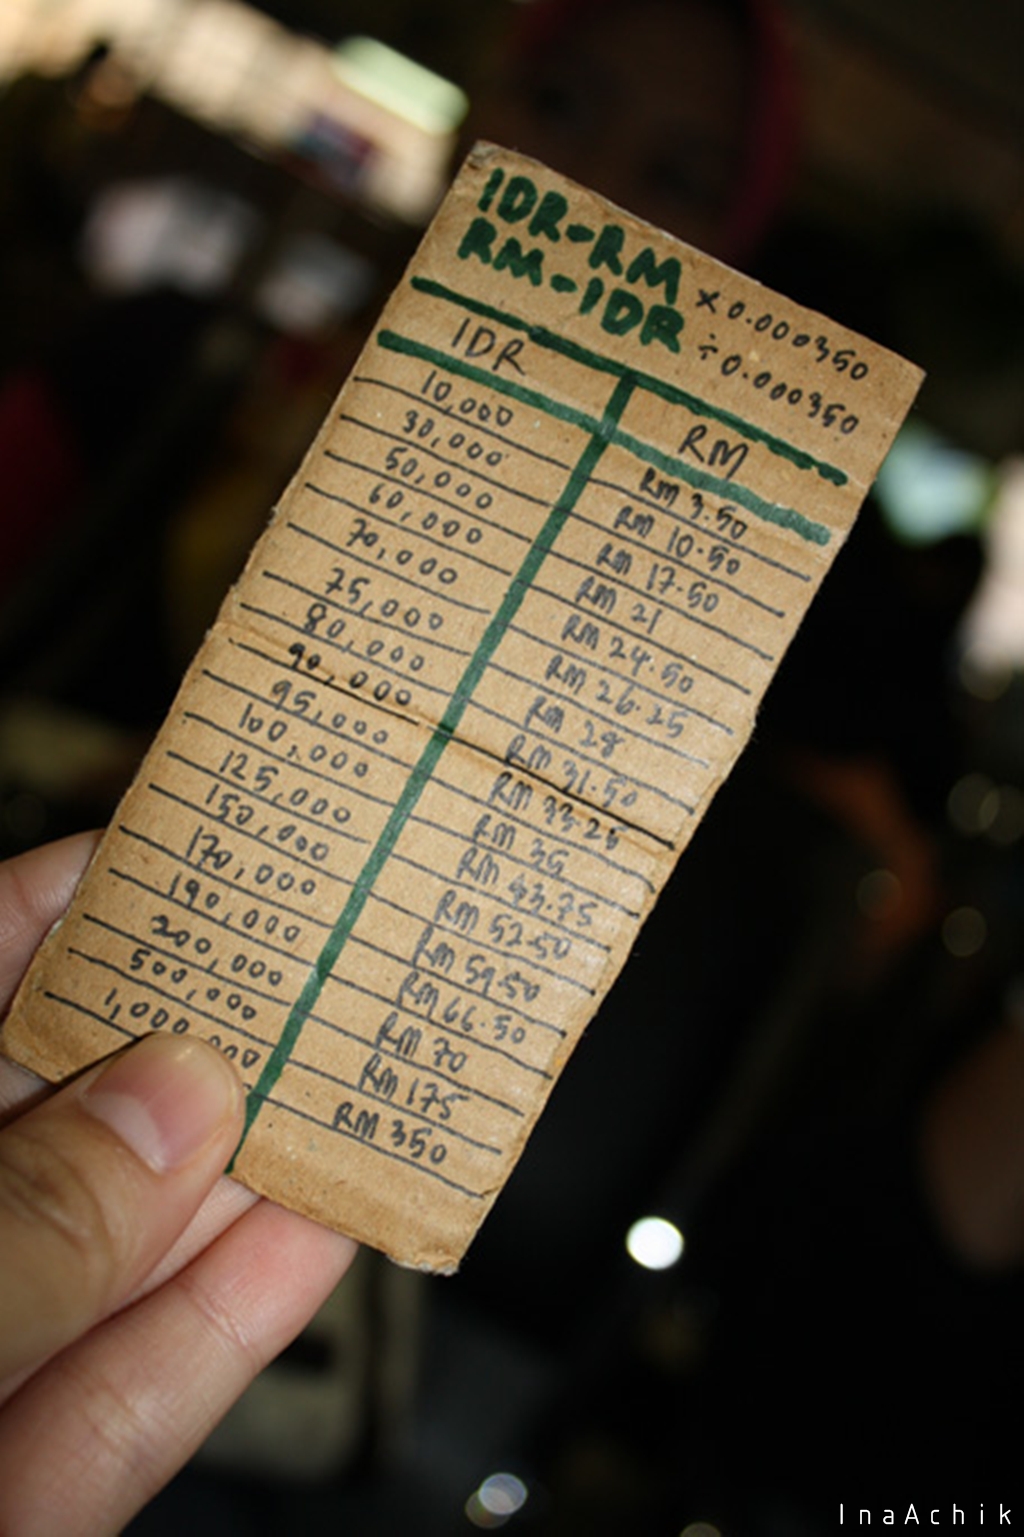 IDR-RM x 0.000350
RM-IDR ÷ 0.000350
IDR RM
10,000 RM 3.50
30,000 RM 10.50
50,000 RM 17.50
60,000 RM 21
70,000 RM 24.50
75,000 RM 26.25
80,000 RM 28
90,000 RM 31.50
95,000 RM 33.25
100,000 RM 35
125,000 RM 43.75
150,000 RM 52.50
170,000 RM 59.50
190,000 RM 66.50
200,000 RM 70
500,000 RM 175
1,000,000 RM 350
InaAchik